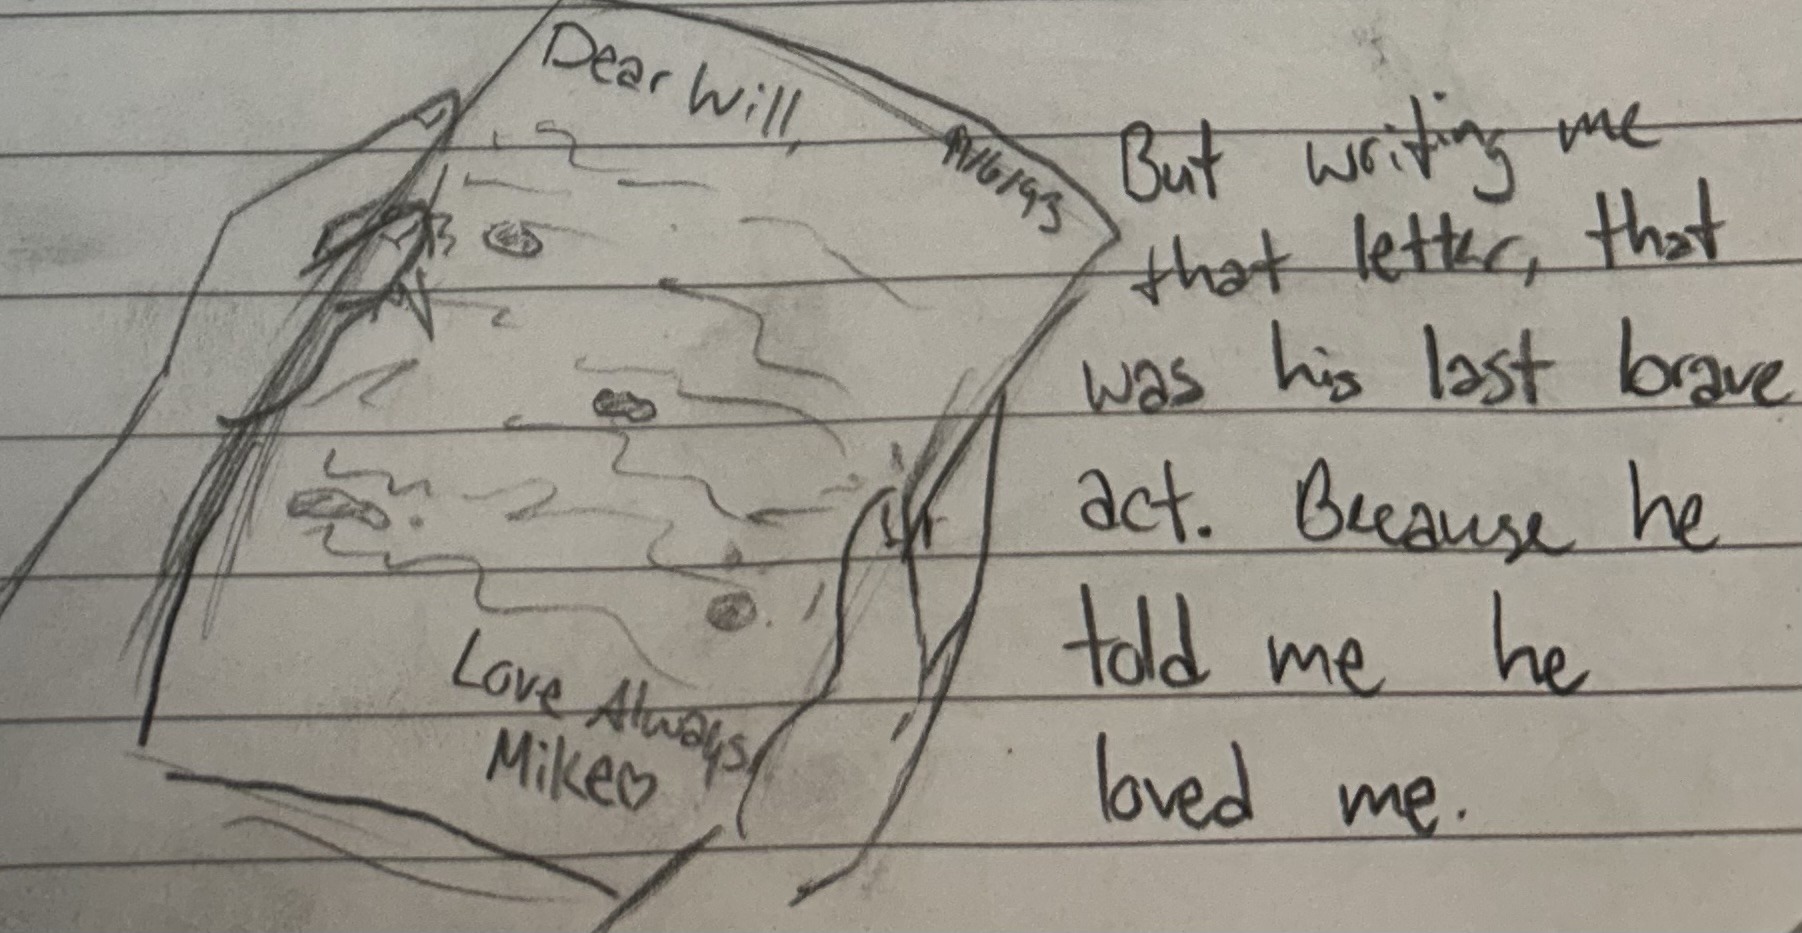 Dear Will,
Love Always,
Mike♡
But writing me
that letter, that
was his last brave
act. Because he
told me he
loved me.